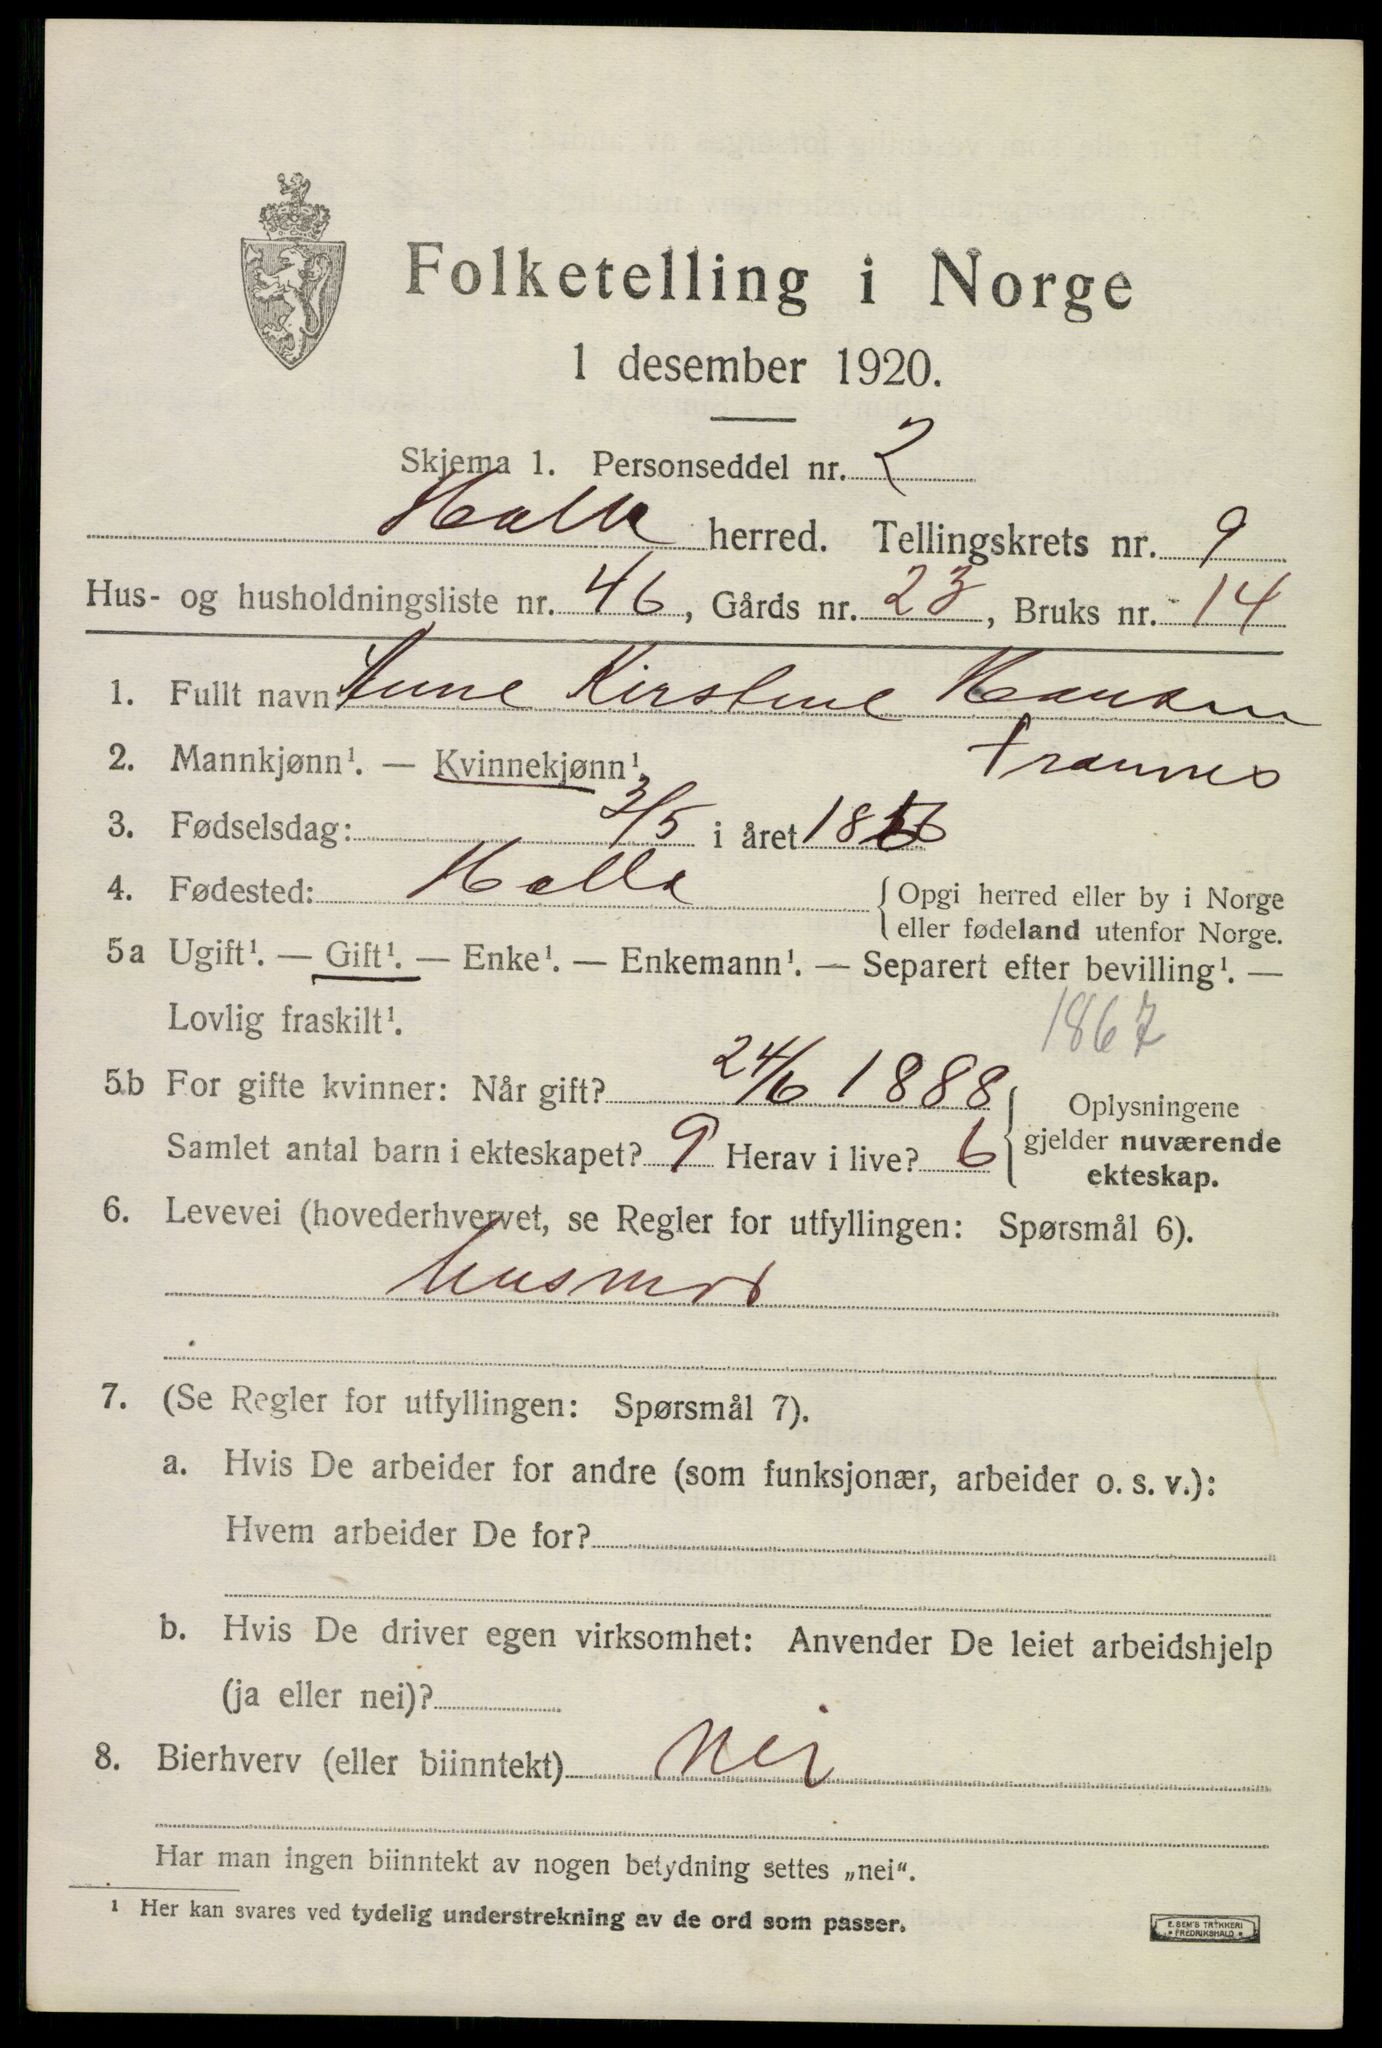 Folketelling i Norge
1 desember 1920.
Skjema 1. Personseddel nr. 2
Holla herred. Tellingskrets nr. 9
Hus- og husholdningsliste nr. 46, Gårds nr. 23, Bruks nr. 14
1. Fullt navn: Anne Kirstine Hansen
Trannes
2. Mannkjønn¹. — Kvinnekjønn¹.
3. Fødselsdag: 3/5 i året 18
4. Fødested: Holla {Opgi herred eller by i Norge
eller fødeland utenfor Norge.
5a Ugift¹. — Gift¹. — Enke¹. — Enkemann¹. — Separert efter bevilling¹. —
Lovlig fraskilt¹. 1867
5b For gifte kvinner: Når gift? 24/6 1888 { Oplysningene
Samlet antal barn i ekteskapet? 9 Herav i live? 6 gjelder nuværende
ekteskap.
6. Levevei (hovederhvervet, se Regler for utfyllingen: Spørsmål 6).
husmor
7. (Se Regler for utfyllingen: Spørsmål 7).
a. Hvis De arbeider for andre (som funksjonær, arbeider o. s. v.):
Hvem arbeider De for?
b. Hvis De driver egen virksomhet: Anvender De leiet arbeidshjelp
(ja eller nei)?
8. Bierhverv (eller biinntekt) Nei
Har man ingen biinntekt av nogen betydning settes „nei“.
¹ Her kan svares ved tydelig understrekning av de ord som passer.
E. SEM'S TRYKKERI
* FREDRIKSHALD *